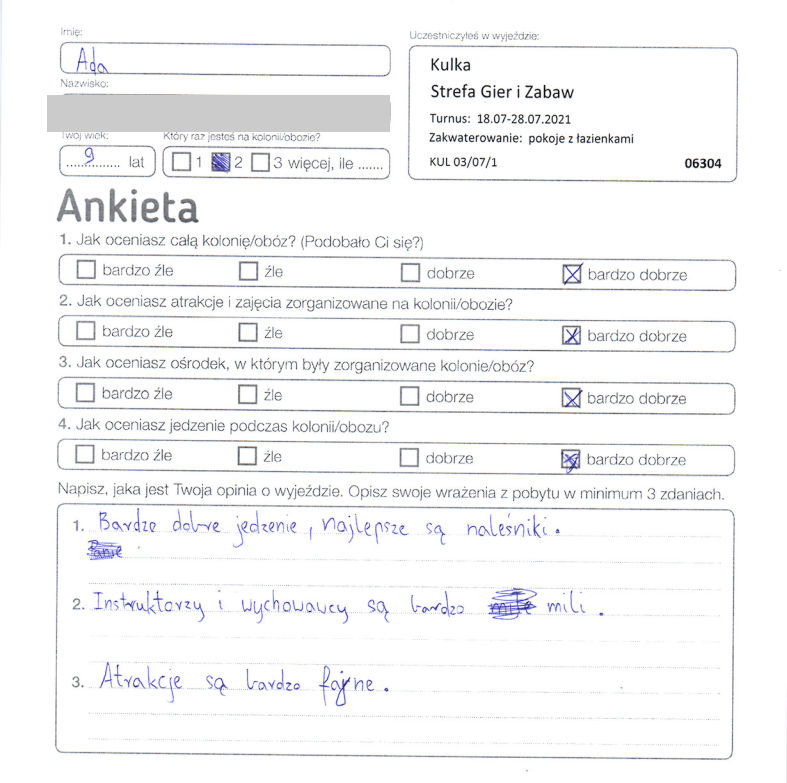 Imię:
Ada
Uczestniczyłeś w wyjeździe:
Kulka
Strefa Gier i Zabaw
Turnus: 18.07-28.07.2021
Zakwaterowanie: pokoje z łazienkami
KUL 03/07/1 06304
Nazwisko:
Twój wiek:
9 lat
Który raz jesteś na kolonii/obozie?
1 2 3 więcej, ile .......
Ankieta
1. Jak oceniasz całą kolonię/obóz? (Podobało Ci się?)
bardzo źle źle dobrze bardzo dobrze
2. Jak oceniasz atrakcje i zajęcia zorganizowane na kolonii/obozie?
bardzo źle źle dobrze bardzo dobrze
3. Jak oceniasz ośrodek, w którym były zorganizowane kolonie/obóz?
bardzo źle źle dobrze bardzo dobrze
4. Jak oceniasz jedzenie podczas kolonii/obozu?
bardzo źle źle dobrze bardzo dobrze
Napisz, jaka jest Twoja opinia o wyjeździe. Opisz swoje wrażenia z pobytu w minimum 3 zdaniach.
1. Bardzo dobre jedzenie, najlepsze są naleśniki.
2. Instruktorzy i wychowawcy są bardzo mili.
3. Atrakcje są bardzo fajne.